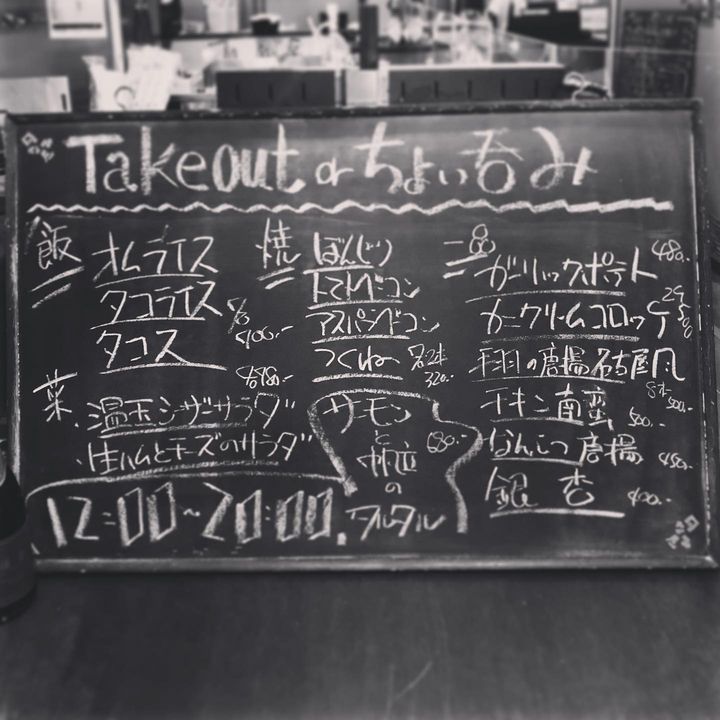 Takeout or ちょい呑み
飯
オムライス
タコライス
タコス
各400.-
菜
各480.-
温玉シーザーサラダ
生ハムとチーズのサラダ
12:00~20:00.
焼
ぼんじり
トマトベーコン
アスパラベーコン
つくね
各2本
320.-
サーモン
と
帆立
の
タルタル
680.-
一品
ガーリックポテト
480.-
カニクリームコロッケ
2ケ
500
手羽の唐揚名古屋風
5本
500.-
チキン南蛮
500.-
なんこつ唐揚
450.-
銀杏
400.-